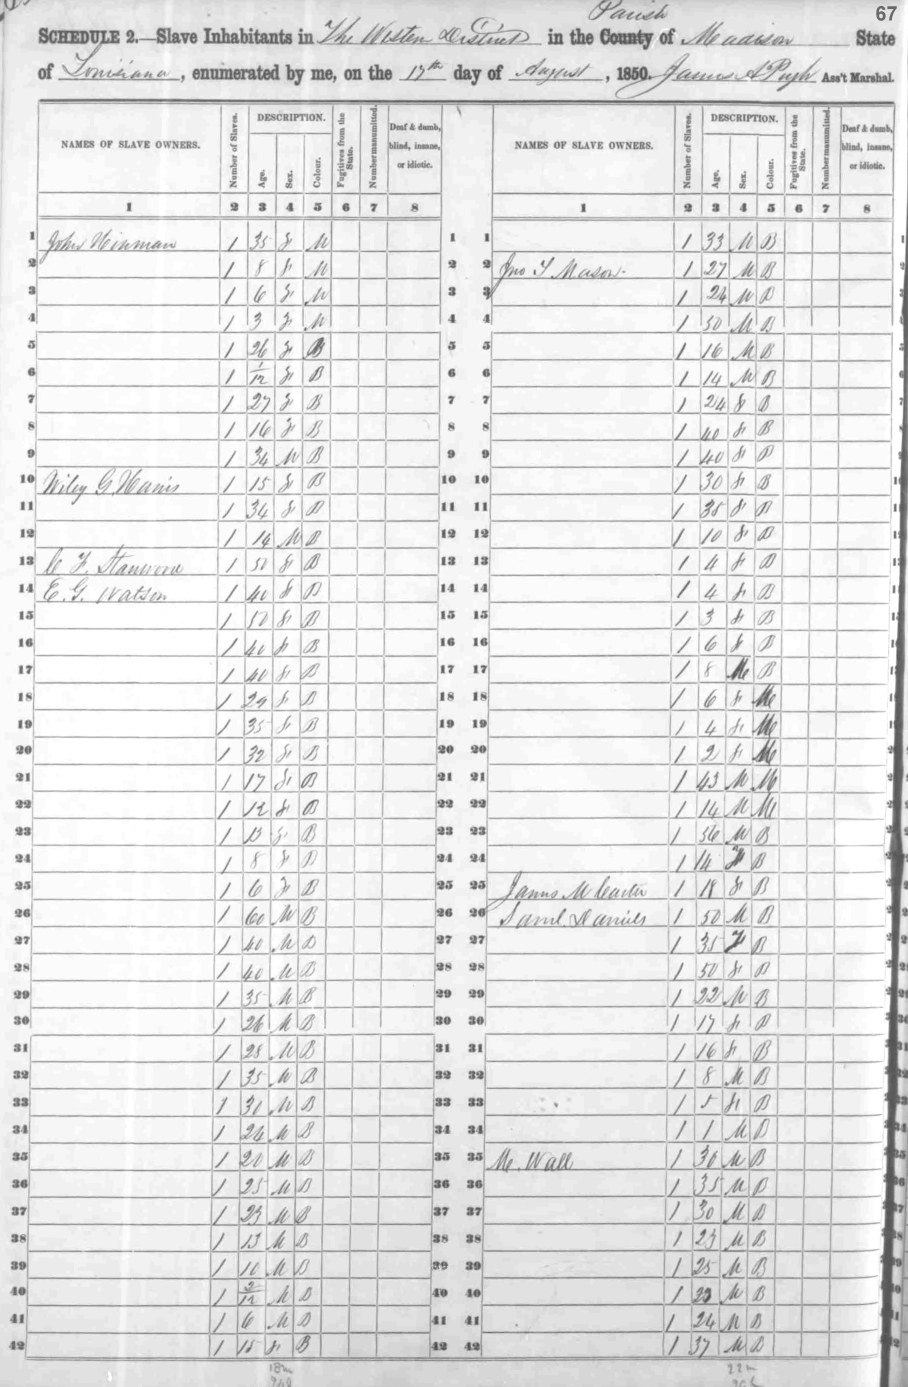 67
Parish
SCHEDULE 2.—Slave Inhabitants in The Western District in the County of Madison State
of Louisiana, enumerated by me, on the 17th day of August, 1850. James A Pugh Ass't Marshal.
NAMES OF SLAVE OWNERS. Number of Slaves. DESCRIPTION. Age. Sex. Colour. Fugitives from the State. Number manumitted. Deaf & dumb, blind, insane, or idiotic.
1 2 3 4 5 6 7 8
1 John Hinman 1 35 F M 1
2 1 8 F M 2
3 1 6 F M 3
4 1 3 F M 4
5 1 26 F B 5
6 1 1/12 F B 6
7 1 27 F B 7
8 1 16 F B 8
9 1 34 M B 9
10 Wiley G Harris 1 15 F B 10
11 1 34 F B 11
12 1 14 M B 12
13 C F. 1 50 F B 13
14 E. G. Watson 1 40 F B 14
15 1 50 F B 15
16 1 40 F B 16
17 1 40 F B 17
18 1 29 F B 18
19 1 35 F B 19
20 1 32 F B 20
21 1 17 F B 21
22 1 12 F B 22
23 1 13 F B 23
24 1 8 F B 24
25 1 6 F B 25
26 1 60 M B 26
27 1 40 M B 27
28 1 40 M B 28
29 1 35 M B 29
30 1 26 M B 30
31 1 25 M B 31
32 1 35 M B 32
33 1 30 M B 33
34 1 24 M B 34
35 1 20 M B 35
36 1 25 M B 36
37 1 23 M B 37
38 1 13 M B 38
39 1 10 M B 39
40 1 2/12 M B 40
41 1 6 M B 41
42 1 15 F B 42
NAMES OF SLAVE OWNERS. Number of Slaves. DESCRIPTION. Age. Sex. Colour. Fugitives from the State. Number manumitted. Deaf & dumb, blind, insane, or idiotic.
1 2 3 4 5 6 7 8
1 1 33 M B
2 Jno T Mason. 1 27 M B
3 1 24 M B
4 1 50 M B
5 1 16 M B
6 1 14 M B
7 1 24 F B
8 1 40 F B
9 1 40 F B
10 1 30 F B
11 1 35 F B
12 1 10 F B
13 1 4 F B
14 1 4 F B
15 1 3 F B
16 1 6 F B
17 1 8 M B
18 1 6 F M
19 1 4 F M
20 1 2 F M
21 1 43 M M
22 1 14 M M
23 1 56 M B
24 1 14 F B
25 James M Carter 1 18 F B
26 Saml Daniels 1 50 M B
27 1 35 F B
28 1 50 F B
29 1 22 M B
30 1 17 F B
31 1 16 F B
32 1 8 M B
33 1 5 F B
34 1 1 M B
35 Mc Wall 1 30 M B
36 1 35 M B
37 1 30 M B
38 1 23 M B
39 1 25 M B
40 1 23 M B
41 1 24 M B
42 1 37 M B